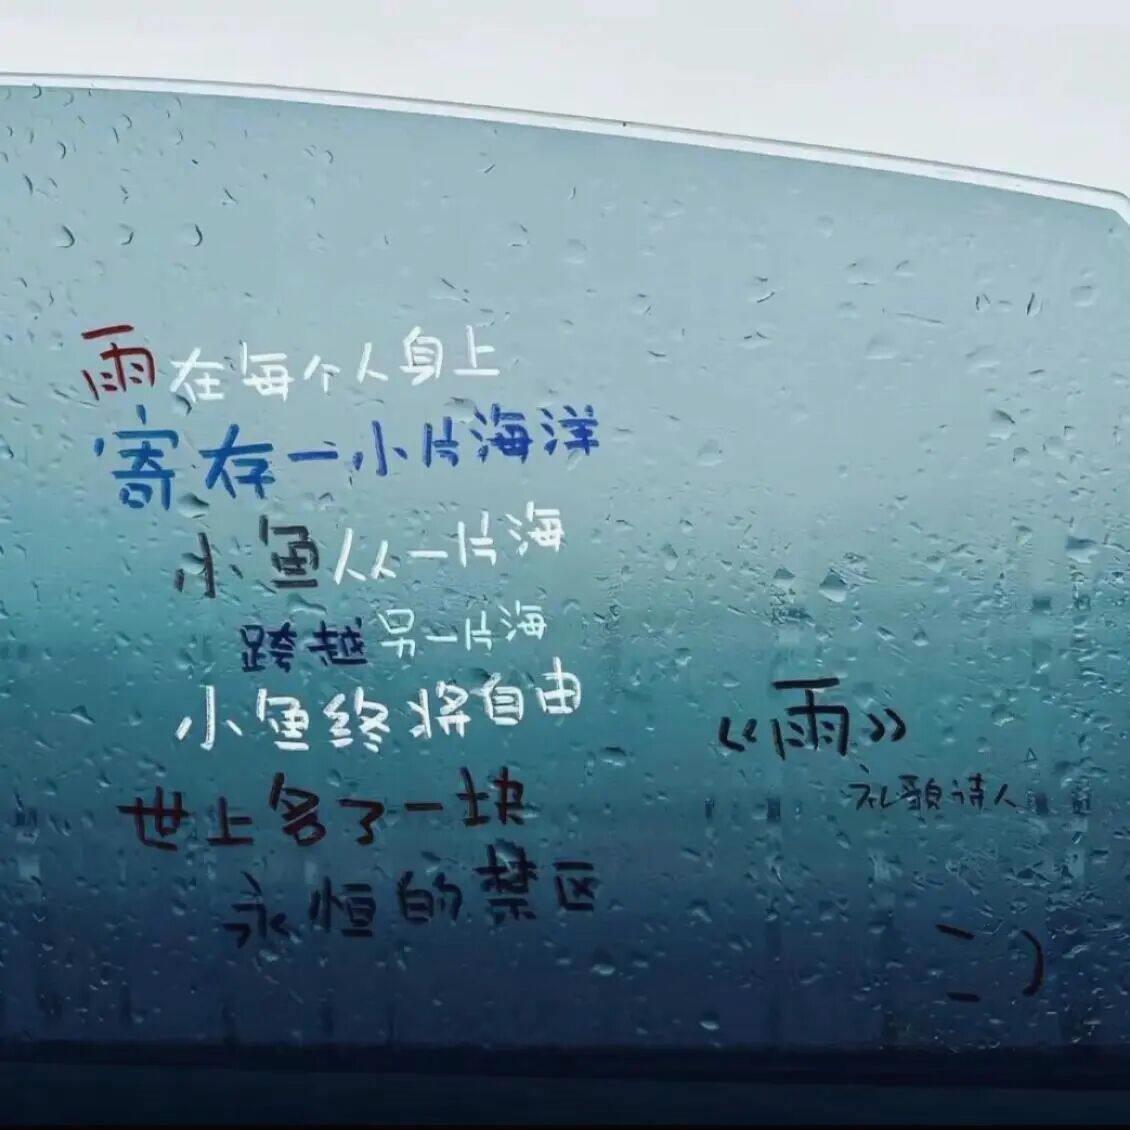 雨在每个人身上
寄存一小片海洋
小鱼从一片海
跨越另一片海
小鱼终将自由
世上多了一块
永恒的禁区
《雨》
礼歌诗人
:)